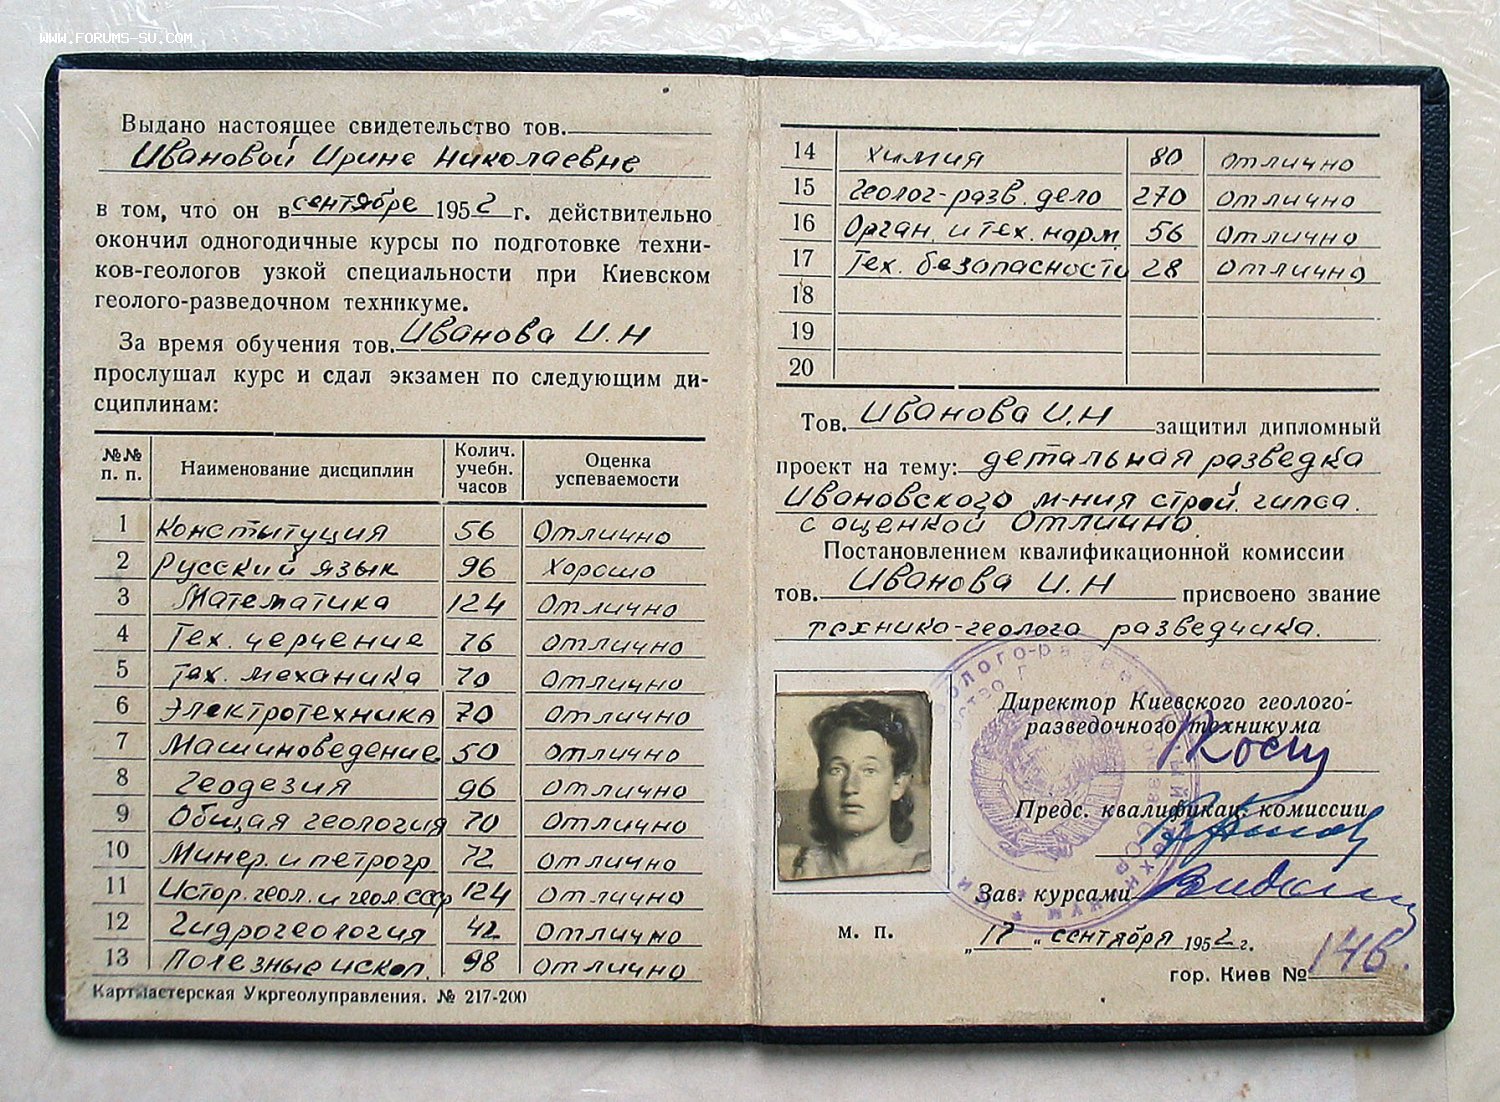 WWW.FORUMS-SU.COM
Выдано настоящее свидетельство тов.
Ивановой Ирине Николаевне
в том, что он в сентябре 1952 г. действительно
окончил одногодичные курсы по подготовке техни-
ков-геологов узкой специальности при Киевском
геолого-разведочном техникуме.
За время обучения тов. Иванова И.Н
прослушал курс и сдал экзамен по следующим ди-
сциплинам:
№№ п. п. Наименование дисциплин Колич. учебн. часов Оценка успеваемости
1 Конституция 56 Отлично
2 Русский язык 96 Хорошо
3 Математика 124 Отлично
4 Тех. черчение 76 Отлично
5 Тех. механика 70 Отлично
6 Электротехника 70 Отлично
7 Машиноведение 50 Отлично
8 Геодезия 96 Отлично
9 Общая геология 70 Отлично
10 Минер. и петрогр 72 Отлично
11 Истор. геол. и геол. СССР 124 Отлично
12 Гидрогеология 42 Отлично
13 Полезные ископ. 98 Отлично
Картмастерская Укргеолуправления. № 217-200
14 Химия 80 Отлично
15 Геолог-разв. дело 270 Отлично
16 Орган. и тех. норм. 56 Отлично
17 Тех. безопасности 28 Отлично
18
19
20
Тов. Иванова И.Н защитил дипломный
проект на тему: детальная разведка
Ивановского м-ния строй. гипса.
с оценкой Отлично.
Постановлением квалификационной комиссии
тов. Иванова И.Н присвоено звание
техника-геолога разведчика.
Директор Киевского геолого-
разведочного техникума
Предс. квалификац. комиссии
Зав. курсами
м. п.
„17" сентября 1952 г.
гор. Киев № 146.